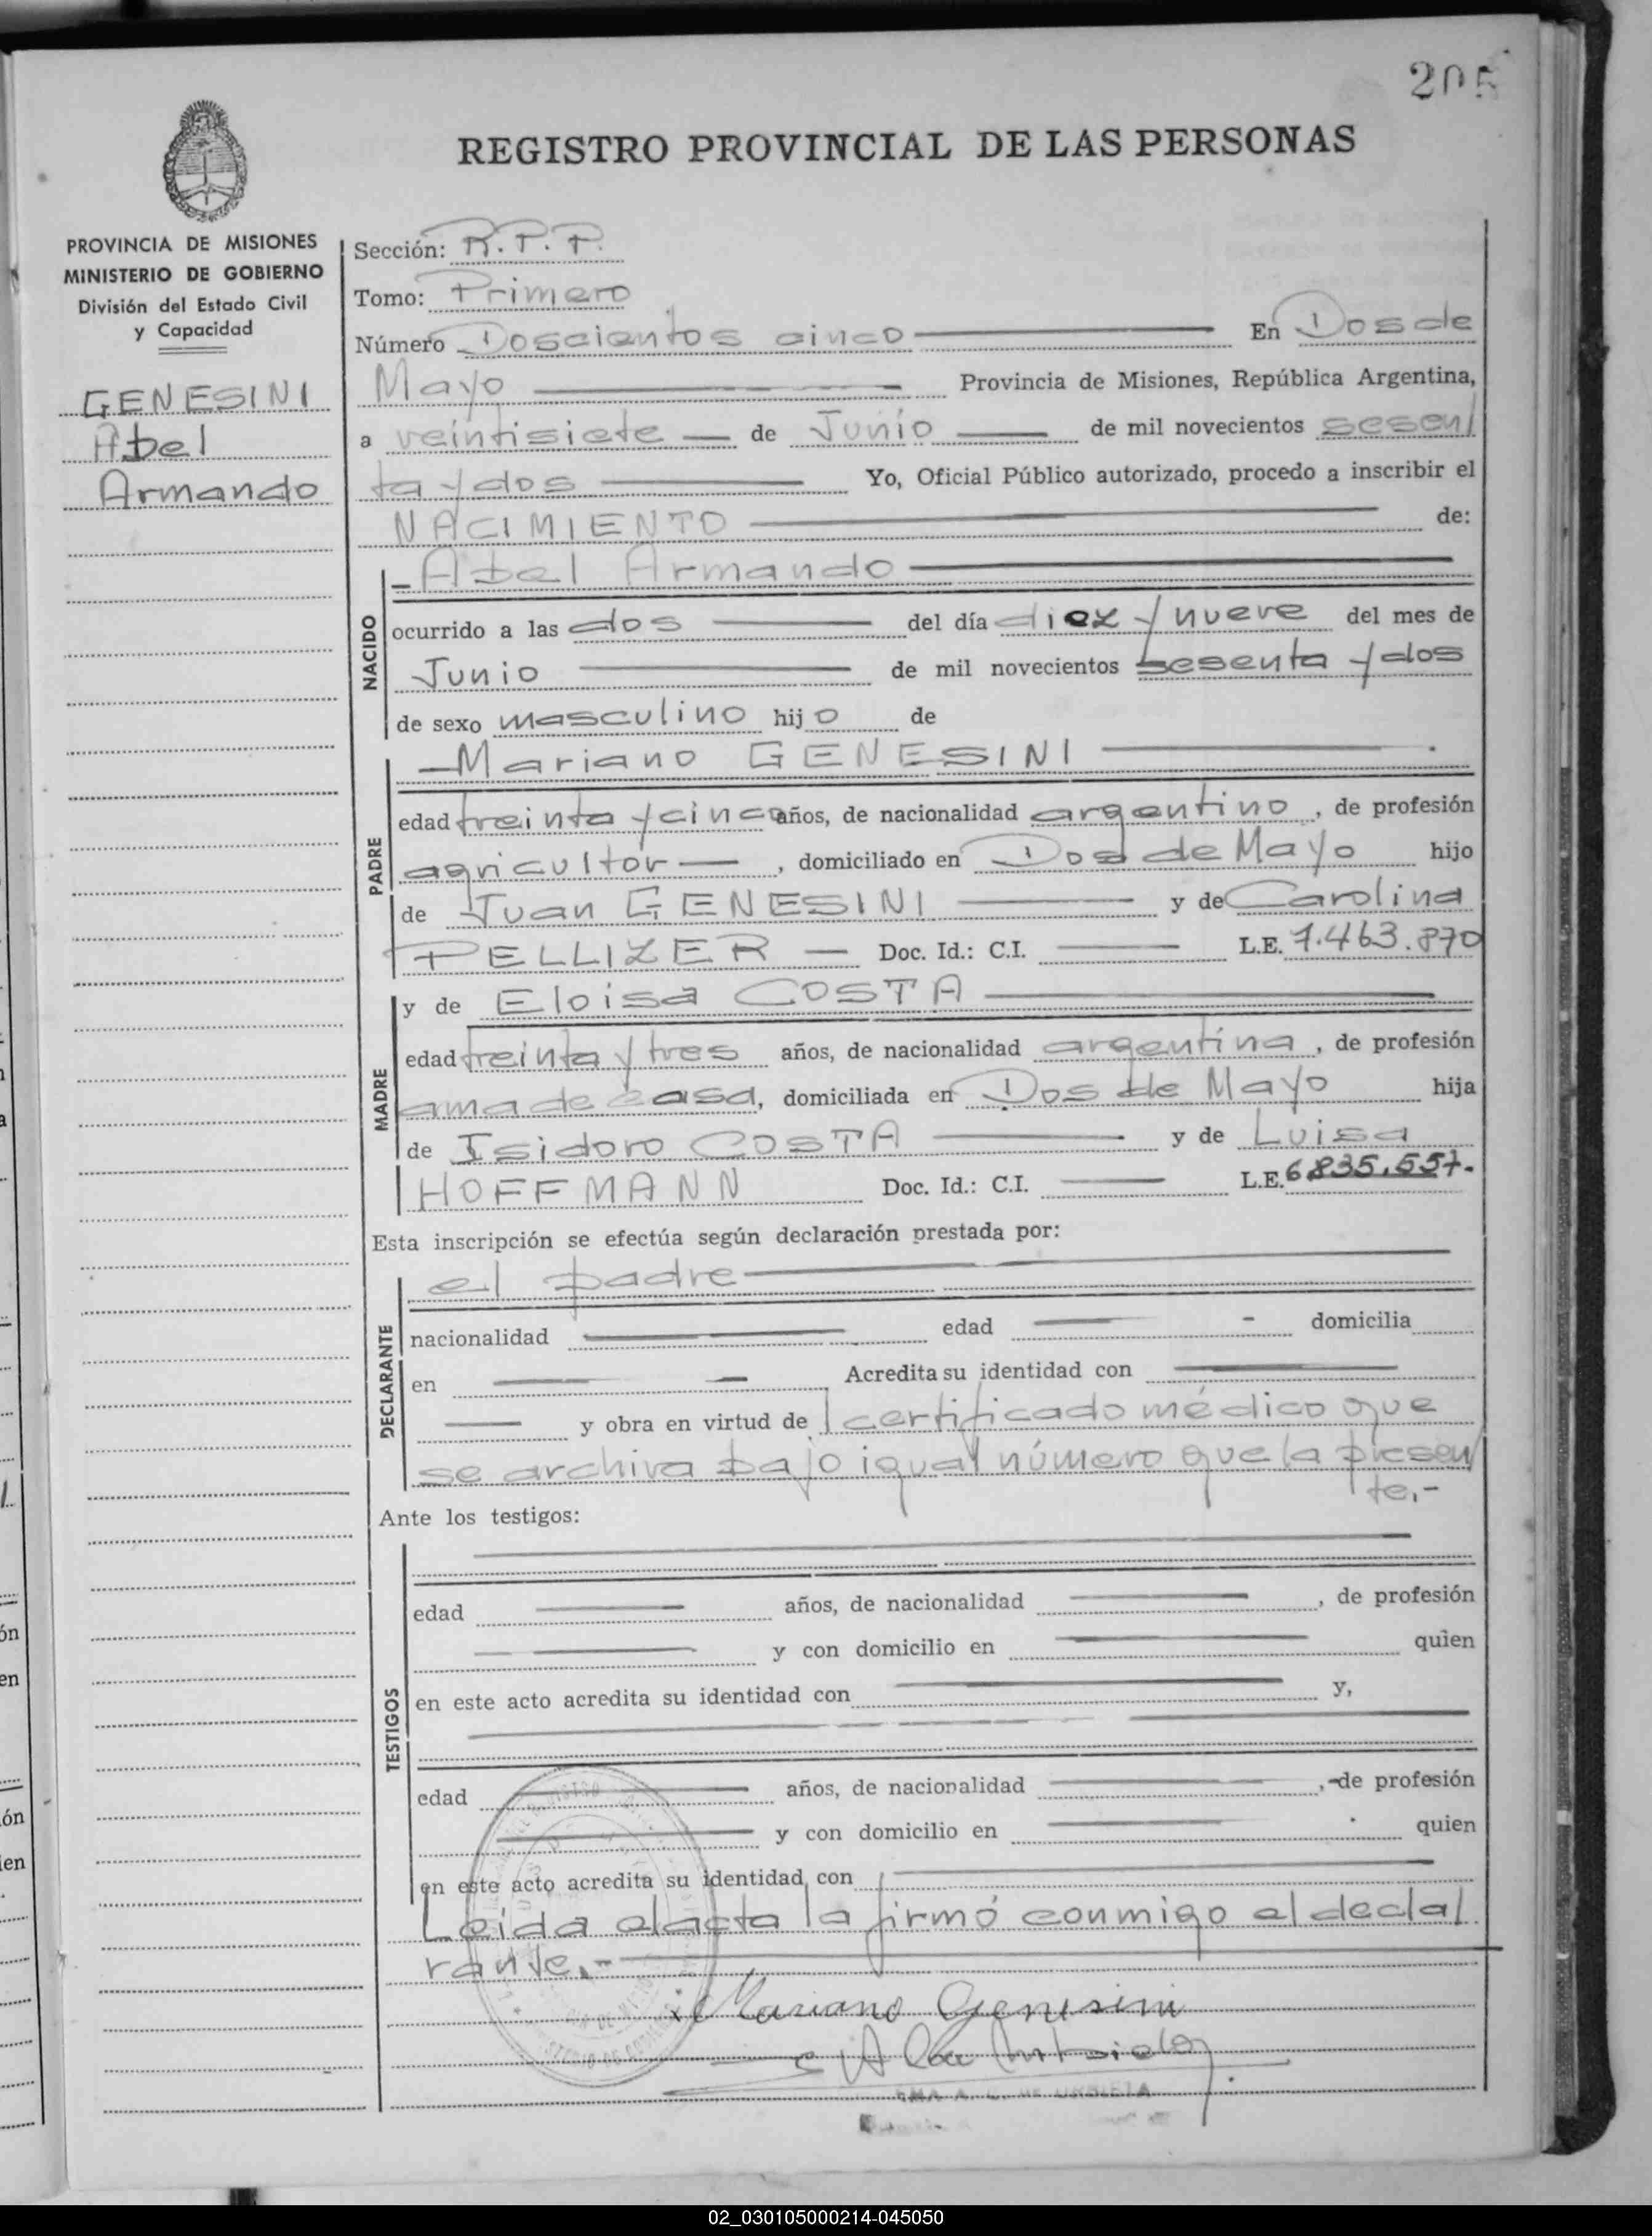 205
REGISTRO PROVINCIAL DE LAS PERSONAS
PROVINCIA DE MISIONES
MINISTERIO DE GOBIERNO
División del Estado Civil
y Capacidad
GENESINI
Abel
Armando
Sección: R.P.P.
Tomo: Primero
Número Doscientos cinco En Dos de
Mayo Provincia de Misiones, República Argentina,
a veintisiete de Junio de mil novecientos sesen/
ta y dos Yo, Oficial Público autorizado, procedo a inscribir el
NACIMIENTO de:
NACIDO
Abel Armando
ocurrido a las dos del día diez y nueve del mes de
Junio de mil novecientos sesenta y dos
de sexo masculino hijo de
PADRE
Mariano GENESINI
edad treinta y cinco años, de nacionalidad argentino, de profesión
agricultor, domiciliado en Dos de Mayo hijo
de Juan GENESINI y de Carolina
PELLIZER Doc. Id.: C.I. L.E. 7.463.870
MADRE
y de Eloisa COSTA
edad treinta y tres años, de nacionalidad argentina, de profesión
ama de casa, domiciliada en Dos de Mayo hija
de Isidoro COSTA y de Luisa
HOFFMANN Doc. Id.: C.I. L.E. 6.835.557.-
Esta inscripción se efectúa según declaración prestada por:
DECLARANTE
el padre
nacionalidad edad domicilia
en Acredita su identidad con
y obra en virtud de certificado médico que
se archiva bajo igual número que la presen/
te.-
Ante los testigos:
TESTIGOS
edad años, de nacionalidad , de profesión
y con domicilio en quien
en este acto acredita su identidad con y,
edad años, de nacionalidad , de profesión
y con domicilio en quien
en este acto acredita su identidad con
Leida el acta la firmó conmigo el decla/
rante.-
Mariano Genesini
02_030105000214-045050